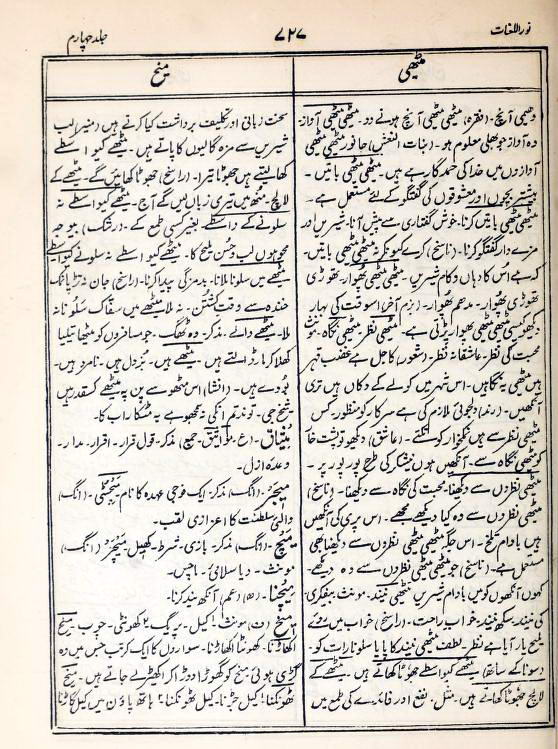 نوراللغات
۷۲۷
جلد چہارم
میٹھی
دھیمی آنچ۔ (فقرہ) میٹھی میٹھی آنچ ہونے دو۔ میٹھی میٹھی آواز
وہ آواز جو بھلی معلوم ہو۔ (بنات النعش) جانور میٹھی میٹھی
آوازوں میں خدا کی حمد گا رہے ہیں۔ میٹھی میٹھی باتیں۔
بیشتر بچوں اور معشوقوں کی گفتگو کے لئے مستعمل ہے۔
میٹھی میٹھی باتیں کرنا۔ خوش گفتاری سے پیش آنا۔ شیریں اور
مزے دار گفتگو کرنا۔ (ناسخ) کرے کیونکر نہ میٹھی میٹھی باتیں۔
کہ ہے اس کا دہاں و کام شیریں۔ میٹھی میٹھی پھوار۔ تھوڑی
تھوڑی پھوار۔ مدھم پھوار۔ (بزم آخر) اسوقت کی بہار
دیکھو کیسی میٹھی میٹھی پھوار پڑتی ہے۔ میٹھی نظر میٹھی نگاہ۔ مونث
محبت کی نظر۔ عاشقانہ نظر۔ (شعور) کاجل ہے غضب قہر
ہیں میٹھی یہ نگاہیں۔ اس شہر میں کولے کے دکاں ہیں تری
آنکھیں۔ (رند) دلجوئی ملازم کی ہے سرکار کو منظور کس
میٹھی نظر سے ہیں نمکخوار کو تکتے۔ (عاشق) دیکھو تو پشت خا
کو میٹھی نگاہ سے۔ آنکھیں ہوں نیشکر کی طرح پور پور پر۔
میٹھی نظروں سے دیکھنا۔ محبت کی نگاہ سے دیکھنا۔ (ناسخ)
میٹھی نظروں سے وہ کیا دیکھے مجھے۔ اس پری کی آنکھیں
ہیں بادام تلخ۔ اس جگہ میٹھی میٹھی نظروں سے دیکھنا بھی
مستعمل ہے۔ (ناسخ) جو میٹھی میٹھی نظروں سے وہ دیکھے۔
کہوں آنکھوں کو میں بادام شیریں۔ میٹھی نیند۔ مونث۔ بیفکری
کی نیند۔ سکھ نیند۔ خواب راحت۔ (ناسخ) خواب میں روے
ملیح یار آیا ہے نظر۔ لطف میٹھی نیند کا پایا سلونا رات کو۔
لالچ جھوٹا کھاتے ہیں۔ مثل۔ نفع اور فائدے کی طمع میں
میخ
سخت زبانی اور تکلیف برداشت کیا کرتے ہیں (منیر) لب
شیریں سے مزہ گالیوں کا پاتے ہیں۔ میٹھے کیواسطے
کھا لیتے ہیں جھوٹا تیرا۔ (راسخ) جھوٹا کھائیں گے۔ میٹھے کے
لالچ۔ منھ میں تیری زباں لیں گے آج۔ میٹھے کیواسطے نہ
سلونے کے واسطے۔ بغیر کسی طمع کے۔ (رشک) بوجہ
محو ہوں لب و حسن ملیح کا۔ میٹھے کیواسطے نہ سلونے کیواسطے
میٹھے میں سلونا ملانا۔ بدمزگی پیدا کرنا۔ (راسخ) جان نہ تڑپا نمک
خندہ سے وقت کشتن۔ نہ ملا میٹھے میں سفاک سلونا نہ
ملا۔ میٹھے والے۔ مذکر۔ وہ ٹھگ۔ جو مسافروں کو میٹھا تیلیا
کھلا کر مار ڈالتے ہیں۔ میٹھے ہیں۔ بزدل ہیں۔ نامرد ہیں۔
بودے ہیں۔ (انشا) اس مٹھوسے پن پہ میٹھے کسقدر ہیں
شیخ جی۔
میثاق۔ (ع۔ مواثیق۔ جمع) مذکر۔ قول قرار۔ اقرار۔ مدار۔
وعدہ ازل۔
میجر۔ (انگ) مذکر۔ ایک فوجی عہدہ کا نام۔ (انگ)
والیٔ سلطنت کا اعزازی لقب۔
میچ۔ (انگ) مذکر۔ بازی۔ شرط۔ کھیل۔ (انگ)
مونث۔ دیا سلائی۔ ماچس۔
میچنا۔ (ھ) (عم) آنکھ بند کرنا۔
میخ (ف) مونث۔ ۱ کیل۔ پریگ ۲ کھونٹی۔ چوب۔ میخ
اکھاڑنا۔ کھونٹا اکھاڑنا۔ سواروں کا ایک کرتب جس میں وہ
گڑی ہوئی میخ کو گھوڑا دوڑا کر اکھیڑ لے جاتے ہیں۔ میخ
ٹھونکنا۔ ۱ کیل جڑنا۔ کیل ٹھونکنا۔ ۲ ہاتھ پاؤں میں کیل گاڑنا